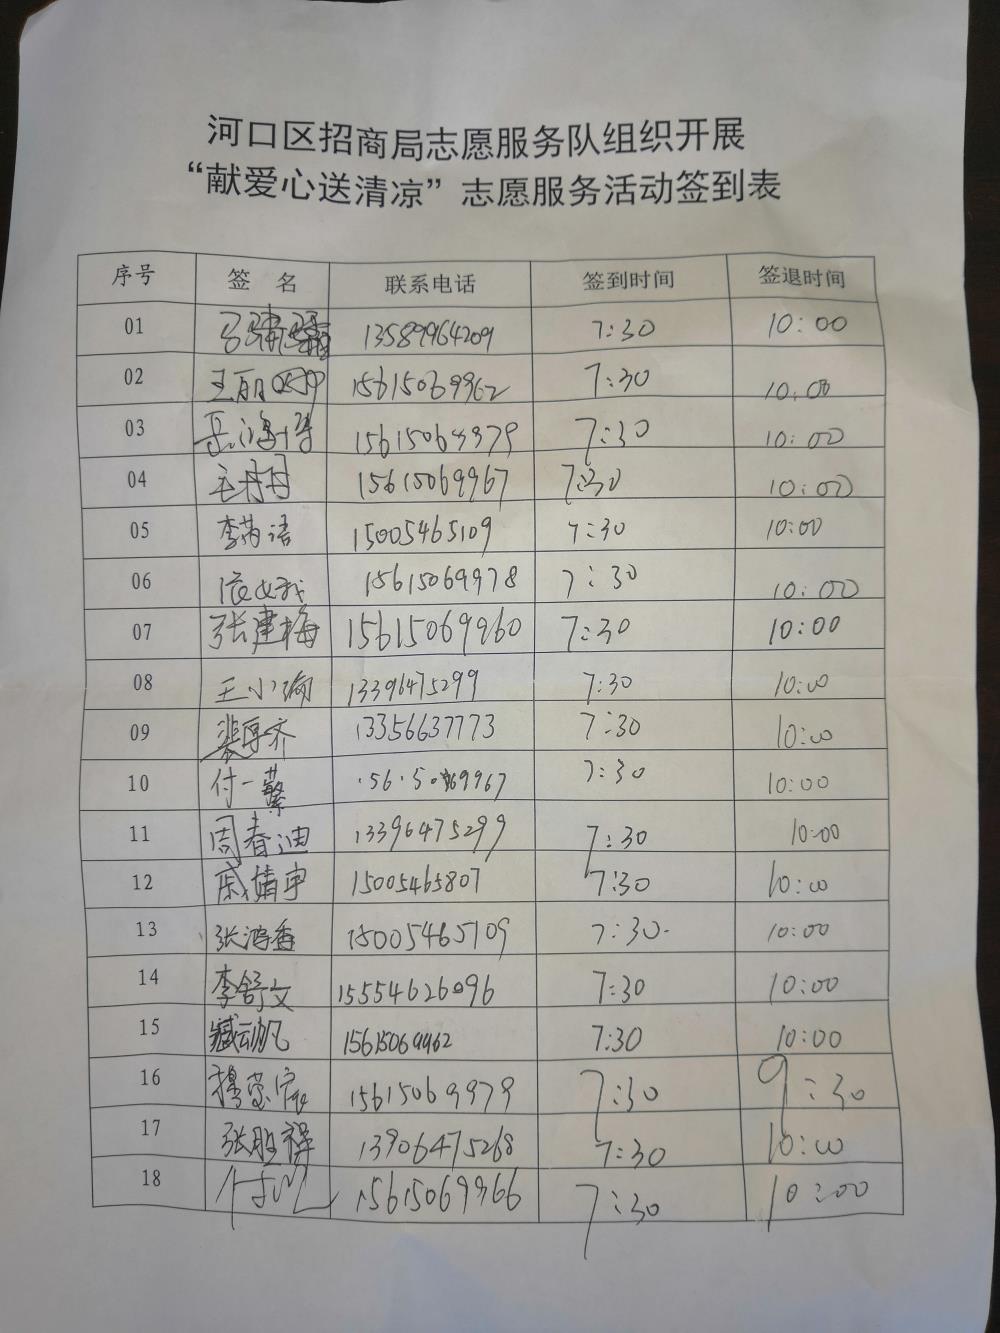 河口区招商局志愿服务队组织开展
“献爱心送清凉”志愿服务活动签到表
序号 签 名 联系电话 签到时间 签退时间
01 13589964209 7:30 10:00
02 王丽 15615069962 7:30 10:00
03 岳 15615069979 7:30 10:00
04 王丹丹 15615069967 7:30 10:00
05 李 语 15005465109 7:30 10:00
06 15615069978 7:30 10:00
07 张建梅 15615069960 7:30 10:00
08 王小瑜 13396475299 7:30 10:00
09 13356637773 7:30 10:00
10 付一蘩 7:30 10:00
11 周春迪 13396475299 7:30 10:00
12 成婧宇 15005465807 7:30 10:00
13 张鸿香 15005465109 7:30 10:00
14 李舒文 15554626096 7:30 10:00
15 臧动帆 15615069962 7:30 10:00
16 穆莹 15615069979 7:30 9:30
17 张胜禄 13906475268 7:30 10:00
18 15615069966 7:30 10:00